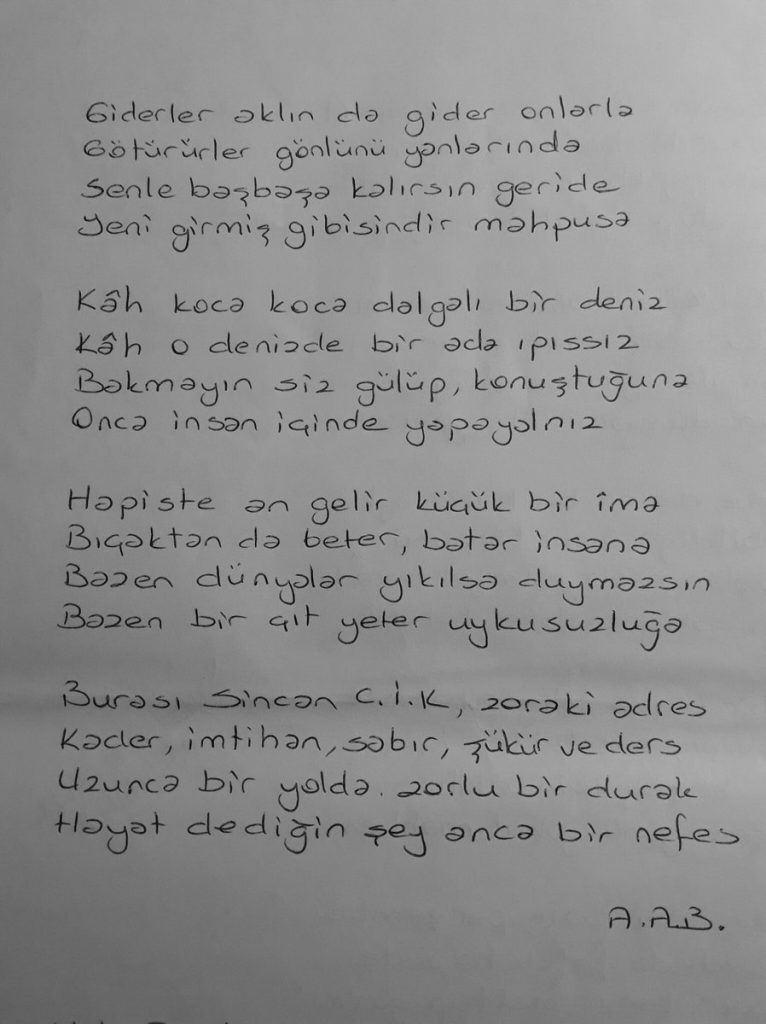 Giderler aklın da gider onlarla
Götürürler gönlünü yanlarında
Senle başbaşa kalırsın geride
Yeni girmiş gibisindir mahpusa
Kâh koca koca dalgalı bir deniz
Kâh o denizde bir ada ıpıssız
Bakmayın siz gülüp, konuştuğuna
Onca insan içinde yapayalnız
Hapiste an gelir küçük bir îma
Bıçaktan da beter, batar insana
Bazen dünyalar yıkılsa duymazsın
Bazen bir çıt yeter uykusuzluğa
Burası Sincan C.İ.K, zoraki adres
Kader, imtihan, sabır, şükür ve ders
Uzunca bir yolda. zorlu bir durak
Hayat dediğin şey anca bir nefes
A.A.B.